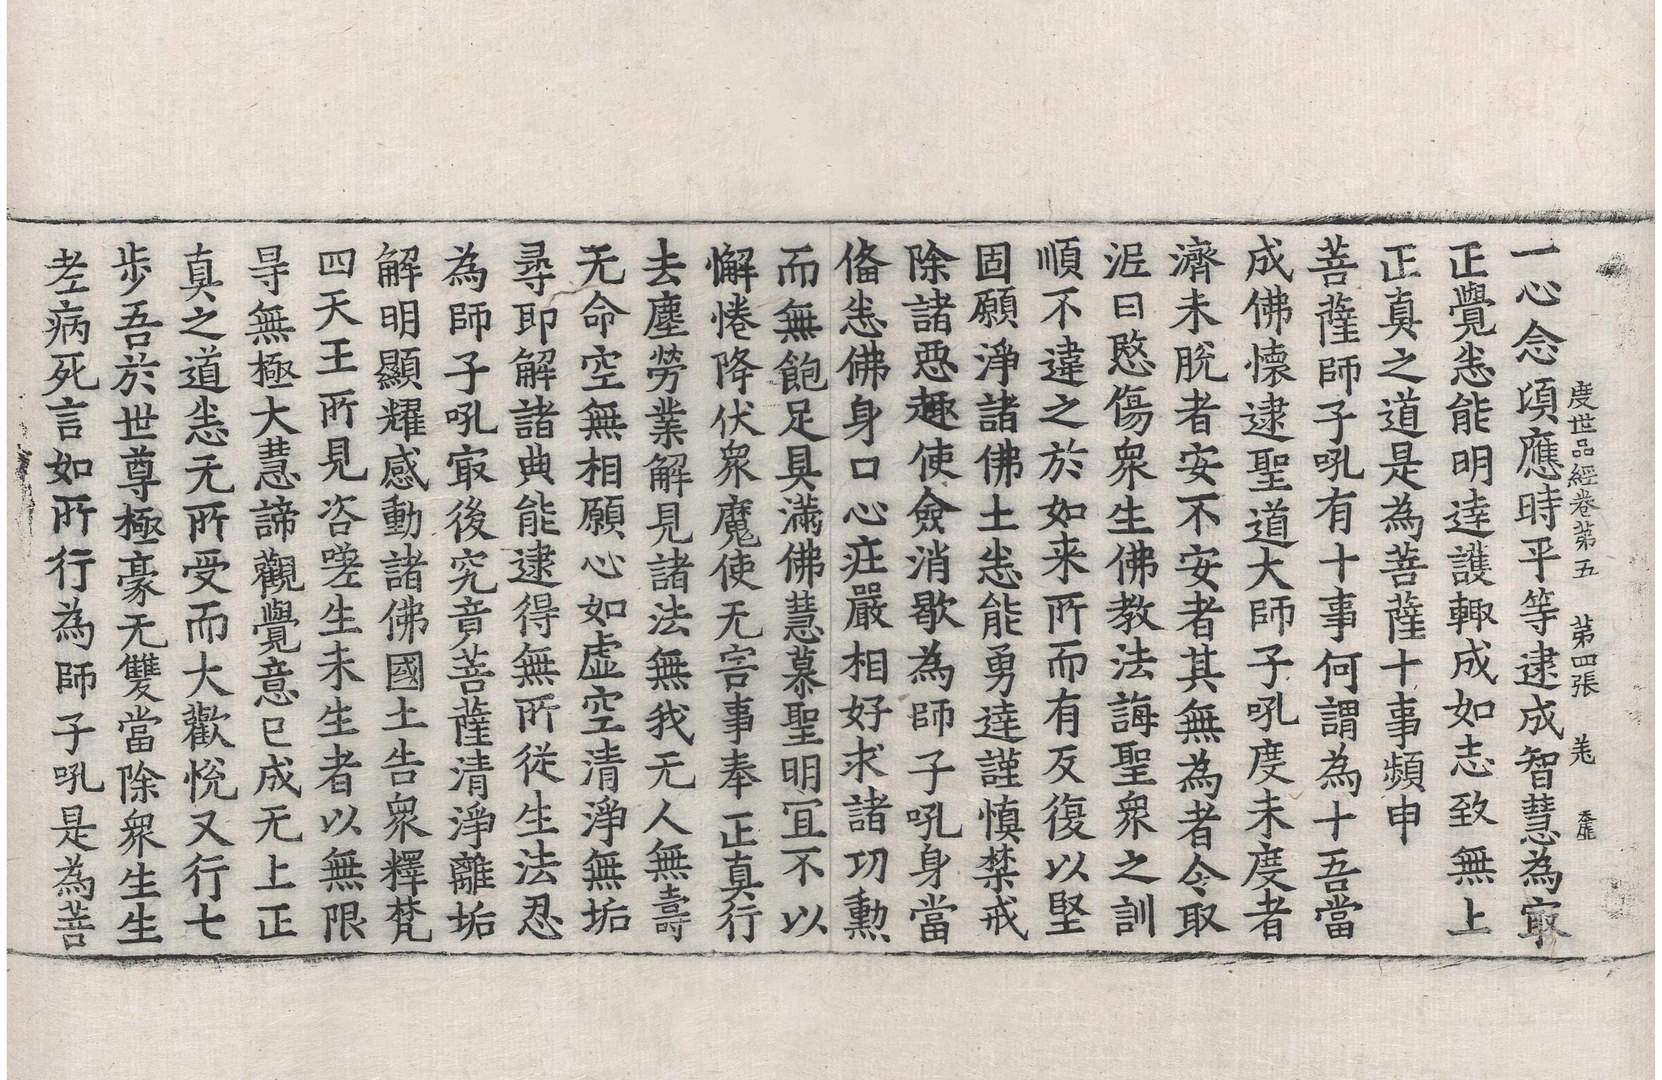 度世品經卷第五 第四張 羌
一心念頃應時平等逮成智慧為㝡
正覺悉能明達護輙成如志致無上
正真之道是為菩薩十事頻申
菩薩師子吼有十事何謂為十吾當
成佛懷逮聖道大師子吼度未度者
濟未脫者安不安者其無為者令取
泥曰愍傷衆生佛教法誨聖衆之訓
順不違之於如来所而有反復以堅
固願淨諸佛土悉能勇達謹慎禁戒
除諸惡趣使僉消歇為師子吼身當
俻悉佛身口心莊嚴相好求諸功勲
而無飽足具滿佛慧慕聖明冝不以
懈惓降伏衆魔使无害事奉正真行
去塵勞業解見諸法無我无人無壽
无命空無相願心如虛空清淨無垢
尋耶解諸典能逮得無所從生法忍
為師子吼㝡後究竟菩薩清淨離垢
解明顯耀感動諸佛國土告衆釋梵
四天王所見咨嗟生未生者以無限
㝵無極大慧諦觀覺意已成无上正
真之道悉无所受而大歡悅又行七
步吾於世尊極豪无雙當除衆生生
老病死言如所行為師子吼是為菩